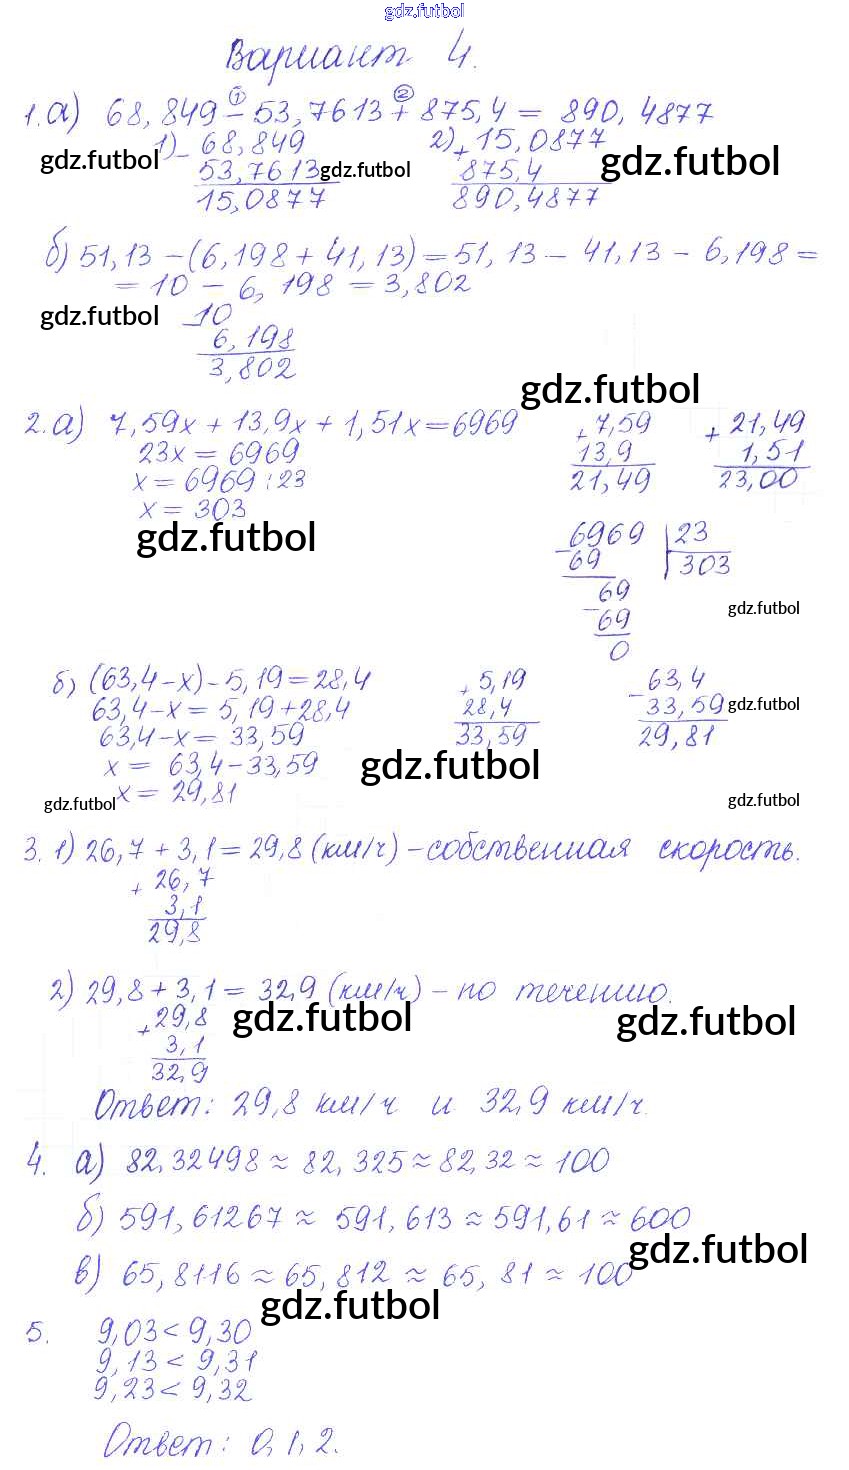 gdz.futbol
Вариант 4.
1. а) 68,849 - 53,7613 + 875,4 = 890,4877
① ②
1) - 68,849 2) + 15,0877
gdz.futbol 53,7613 gdz.futbol 875,4 gdz.futbol
15,0877 890,4877
б) 51,13 - (6,198 + 41,13) = 51,13 - 41,13 - 6,198 =
= 10 - 6,198 = 3,802
gdz.futbol - 10
6,198
3,802
gdz.futbol
2. а) 7,59x + 13,9x + 1,51x = 6969 + 7,59 + 21,49
23x = 6969 13,9 1,51
x = 6969 : 23 21,49 23,00
x = 303
gdz.futbol - 6969 23
69 303
69
- 69 gdz.futbol
0
б) (63,4 - x) - 5,19 = 28,4 + 5,19 - 63,4
63,4 - x = 5,19 + 28,4 28,4 33,59 gdz.futbol
63,4 - x = 33,59 33,59 29,81
x = 63,4 - 33,59 gdz.futbol
gdz.futbol x = 29,81 gdz.futbol
3. 1) 26,7 + 3,1 = 29,8 (км/ч) - собственная скорость.
+ 26,7
3,1
29,8
2) 29,8 + 3,1 = 32,9 (км/ч) - по течению.
+ 29,8 gdz.futbol gdz.futbol
3,1
32,9
Ответ: 29,8 км/ч и 32,9 км/ч.
4. а) 82,32498 ≈ 82,325 ≈ 82,32 ≈ 100
б) 591,61267 ≈ 591,613 ≈ 591,61 ≈ 600
gdz.futbol
в) 65,8116 ≈ 65,812 ≈ 65,81 ≈ 100
gdz.futbol
5. 9,03 < 9,30
9,13 < 9,31
9,23 < 9,32
Ответ: 0, 1, 2.